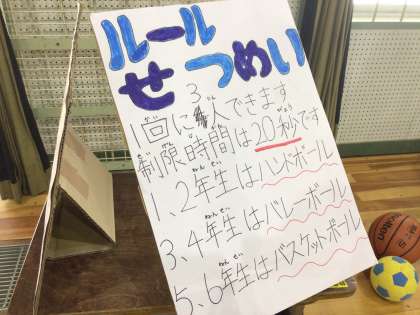 ルール
せつめい
1回に3人できます
制限時間は20秒です
1、2年生はハンドボール
3、4年生はバレーボール
5、6年生はバスケットボール